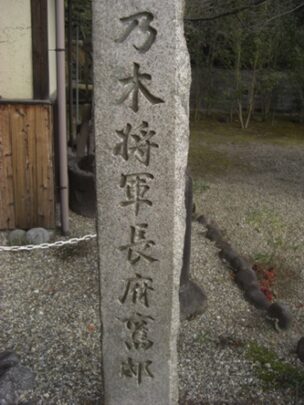 乃木将軍長府旧邸